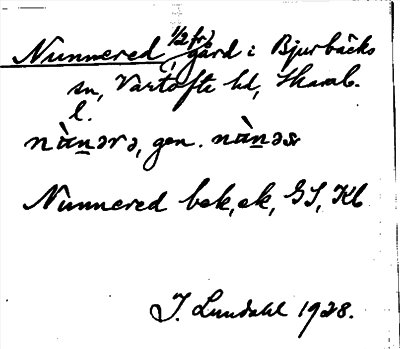 Nunnered, 1/2 frs gård i Bjurbäcks
sn, Vartofta hd, Skarab.
l.
nùnərə, gen. nùnəs
Nunnered bok, ek, GS, Kb
J. Lundahl 1928.